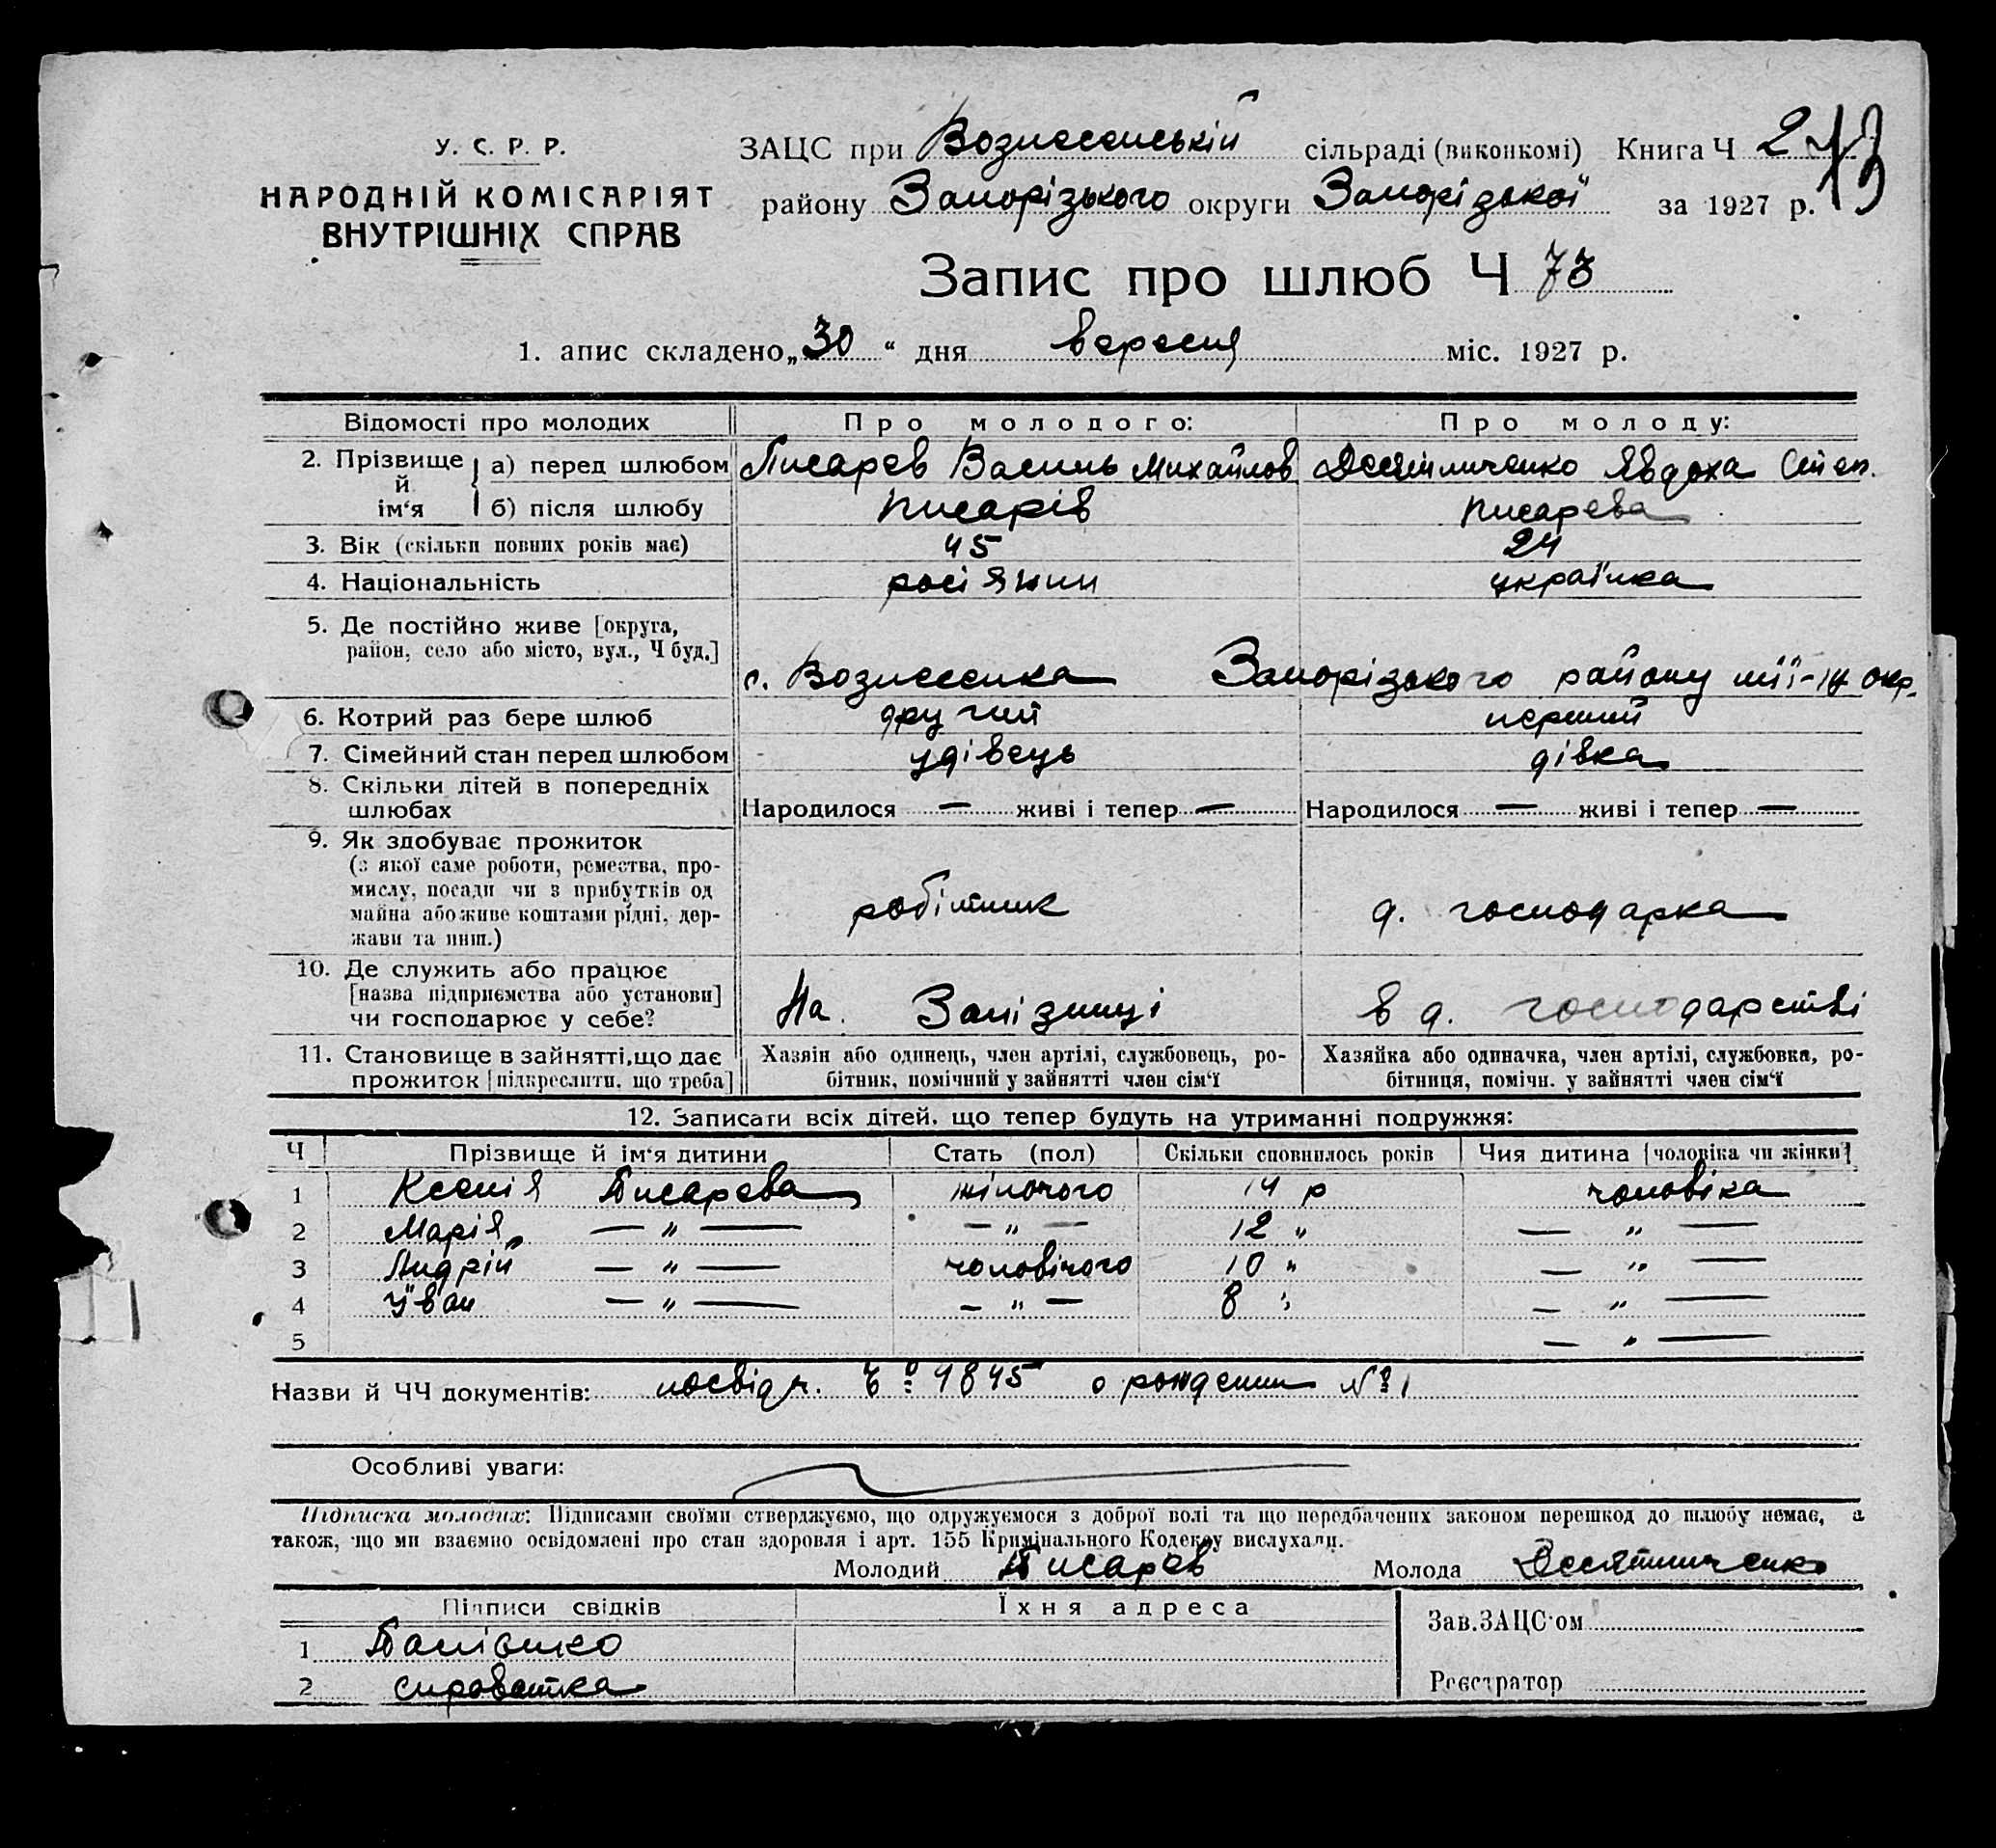 У. С. Р. Р.
НАРОДНІЙ КОМІСАРІЯТ
ВНУТРІШНІХ СПРАВ
ЗАЦС при Вознесенській сільраді (виконкомі) Книга Ч 2
73
району Запорізького округи Запорізької за 1927 р.
Запис про шлюб Ч 73
1. апис складено „30“ дня вересня міс. 1927 р.
Відомості про молодих Про молодого: Про молоду:
2. Прізвище й ім‘я а) перед шлюбом Писарев Василь Михайлов Десятниченко Явдоха Степ.
б) після шлюбу Писарів Писарева
3. Вік (скільки повних років має) 45 24
4. Національність росіянин українка
5. Де постійно живе [округа,
район, село або місто, вул., Ч буд.]
с. Вознесенка Запорізького району окр.
6. Котрий раз бере шлюб другий перший
7. Сімейний стан перед шлюбом удівець дівка
8. Скільки дітей в попередніх
шлюбах Народилося — живі і тепер — Народилося — живі і тепер —
9. Як здобуває прожиток
(з якої саме роботи, ремества, про-
мислу, посади чи з прибутків од
майна або живе коштами рідні, дер-
жави та инш.)
робітник д. господарка
10. Де служить або працює
[назва підприємства або установи]
чи господарює у себе?
На Залізниці в д. господарстві
11. Становище в зайнятті, що дає
прожиток [підкреслити, що треба]
Хазяін або одинець, член артілі, службовець, ро-
бітник, помічний у зайнятті член сім‘ї
Хазяйка або одиначка, член артілі, службовка, ро-
бітниця, помічн. у зайнятті член сім‘ї
12. Записати всіх дітей, що тепер будуть на утриманні подружжя:
Ч Прізвище й ім‘я дитини Стать (пол) Скільки сповнилось років Чия дитина [чоловіка чи жінки]
1 Ксенія Писарева жіночого 14 р чоловіка
2 Марія — „ — — „ — 12 „ — „ —
3 Андрій — „ — чоловічого 10 „ — „ —
4 Іван — „ — — „ — 8 „ — „ —
5 — „ —
Назви й ЧЧ документів: посвідч. Ч 9845 о рождении № 1
Особливі уваги:
Підписка молодих: Підписами своїми стверджуємо, що одружуємося з доброї волі та що передбачених законом перешкод до шлюбу немає, а
також, що ми взаємно освідомлені про стан здоровля і арт. 155 Кримінального Кодексу вислухали.
Молодий Писарев Молода Десятниченко
Підписи свідків Їхня адреса
1
2 Сироватка
Зав. ЗАЦС‘ом
Реєстратор